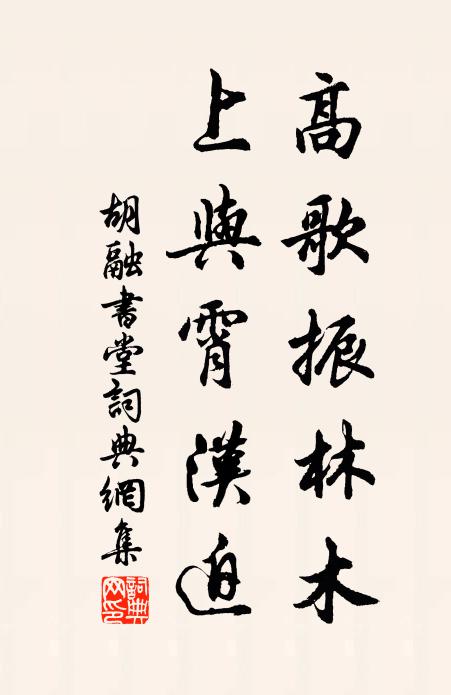 高歌振林木
上與霄漢通
胡融書堂詞典網集
詞典網印